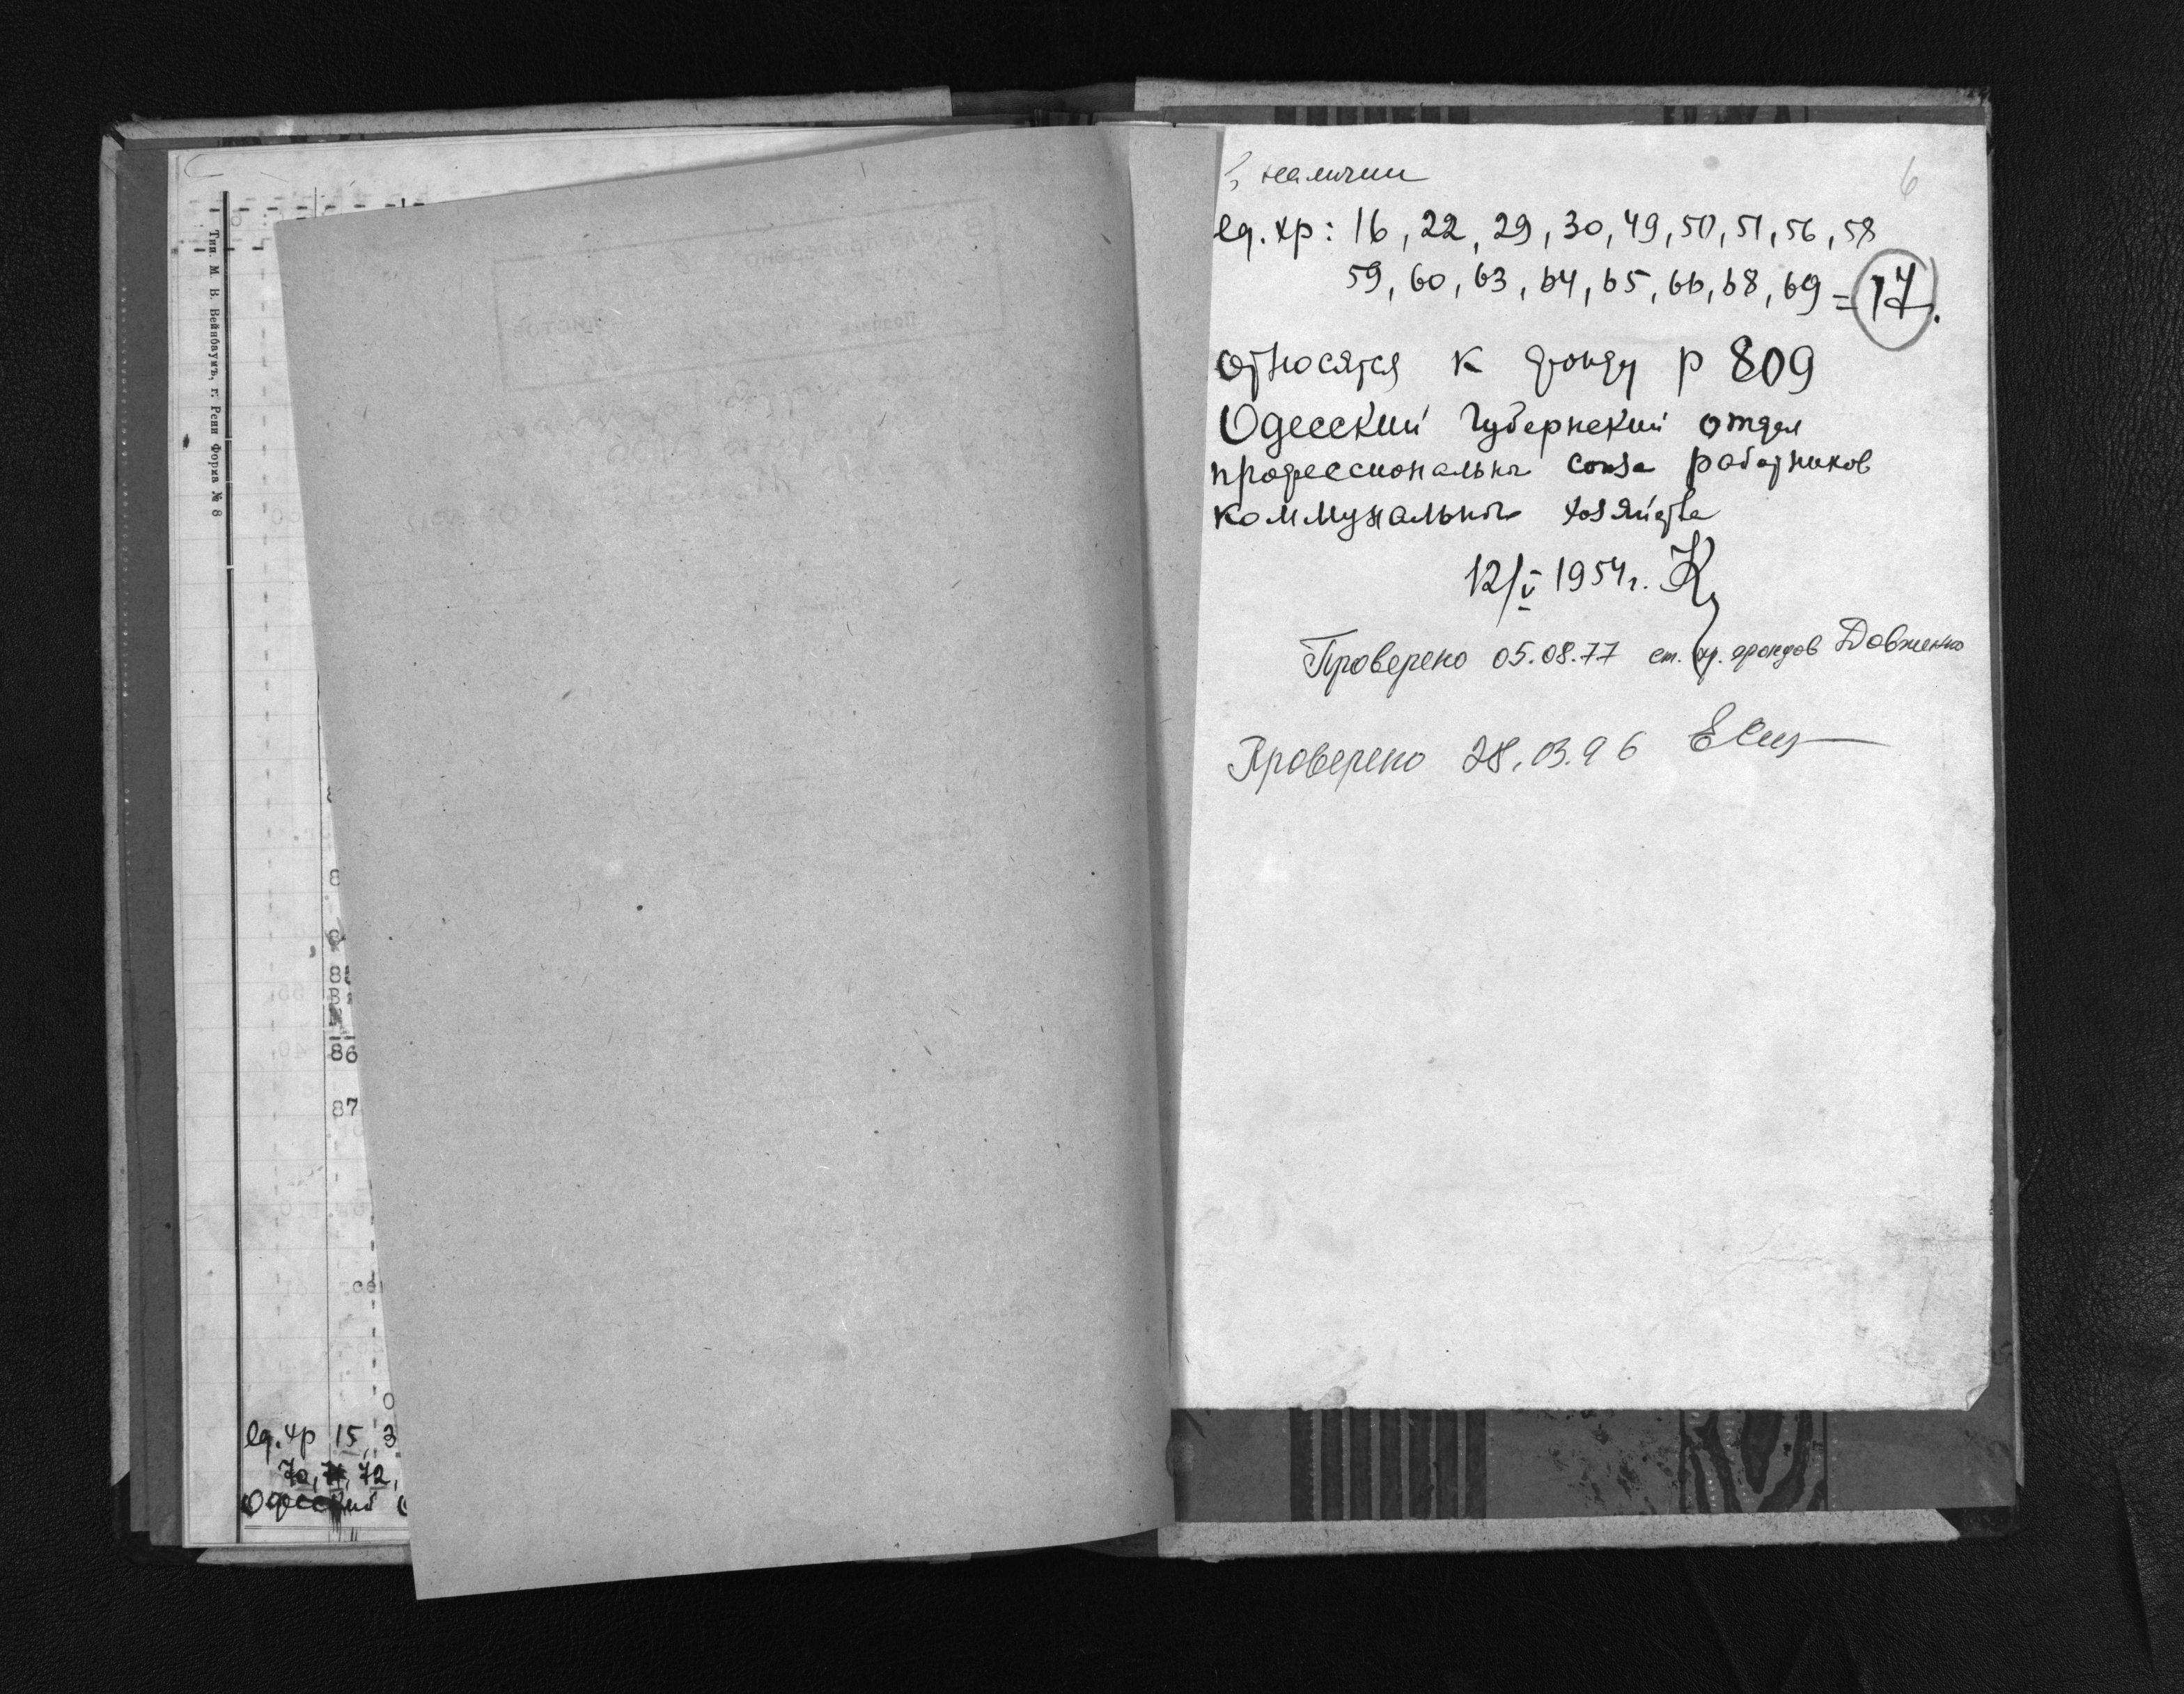 Тип. М. В. Вейнбаумъ, г. Рени Форма № 8
8
86
87
ед. хр 15, 3
70, 71, 72,
Одесский
6
В наличии
ед. хр: 16, 22, 29, 30, 49, 50, 51, 56, 58
59, 60, 63, 64, 65, 66, 68, 69 = 17.
относятся к фонду р 809
Одесский Губернский отдел
профессиональн союза работников
коммунального хозяйства
12/V 1954 г.
Проверено 05.08.77 ст. хр. фондов Довженко
Проверено 28.03.96